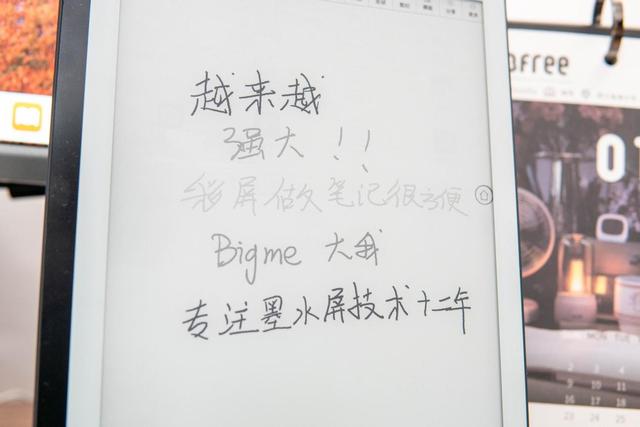 越来越
强大！！
彩屏做笔记很方便
Bigme 大我
专注墨水屏技术十二年
ofree
01
2 3 4
9 10 11
16 17 18
23 24 25